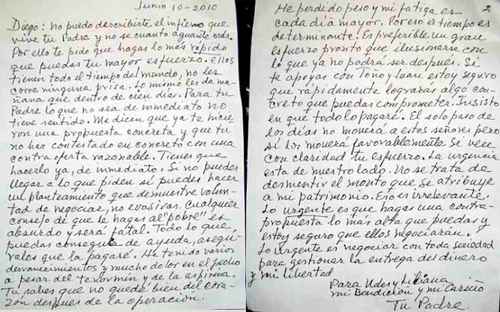 Junio 10-2010
Diego: no puedo describirte el infierno que
vive tu Padre y no se cuanto aguante más.
Por ello te pido que hagas lo más rápido
que puedas tu mayor esfuerzo. Ellos
tienen todo el tiempo del mundo, no les
corre ninguna prisa. Lo mismo les da ma-
ñana que dentro de cien días. Para tu
Padre lo que no sea de inmediato no
tiene sentido. Me dicen que ya te hicie-
ron una propuesta concreta y que tu
no has contestado en concreto con una
contra oferta razonable. Tienes que
hacerlo ya, de inmediato. Si no puedes
llegar a lo que piden si puedes hacer
un planteamiento que demuestre volun-
tad de negociar, no evasivas. Cualquier
consejo de que hagas al "pobre" es
absurdo y será fatal. Todo lo que
puedas conseguir de ayuda, asegú-
rales que la pagaré. He tenido varios
desvanecimientos y mucho dolor en el pecho
a pesar del tenormin y de la aspirina.
Tu sabes que no quedé bien del cora-
zón después de la operación.
2
He perdido peso y mi fatiga es
cada día mayor. Por eso el tiempo es
determinante. Es preferible un gran
esfuerzo pronto que ilusionarse con
lo que ya no podrá ser después. Si
te apoyas con Toño y Juan estoy seguro
que rápidamente lograrás algo con-
creto que puedas comprometer. Insiste
en que todo lo pagaré. El solo paso de
los días no moverá a estos señores pero
si los moverá favorablemente si ve
con claridad tu esfuerzo. La urgencia
está de nuestro lado. No se trata de
desmentir el monto que se atribuye
a mi patrimonio. Eso es irrelevante.
Lo urgente es que hagas una contra-
propuesta lo más alta que puedas y
estoy seguro que ellos negociarán.
Lo urgente es negociar con toda seriedad
para gestionar la entrega del dinero
y mi libertad
Para Udes y Liliana
mi Bendición y mi Cariño
Tu Padre.